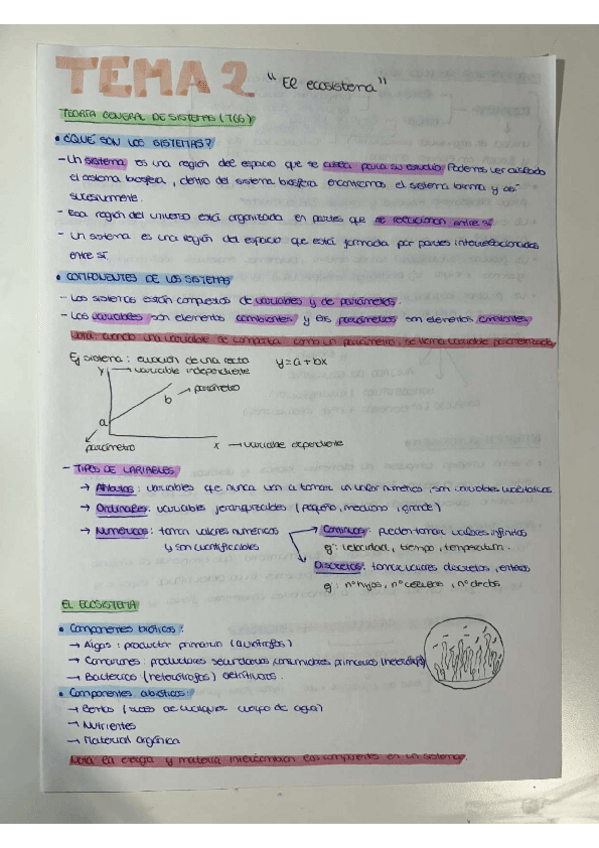 TEMA 2 "El ecosistema"
TEORÍA GENERAL DE SISTEMAS (TGS)
• ¿QUÉ SON LOS SISTEMAS?
- Un sistema es una región del espacio que se para su estudio. Podemos ver
el sistema biosfera, dentro del sistema biosfera encontramos el sistema bioma y así
sucesivamente.
- Esa región del universo está organizada en partes que se relacionan entre sí.
- Un sistema es una región del espacio que está formada por partes interrelacionadas
entre sí.
• COMPONENTES DE LOS SISTEMAS
- Los sistemas están compuestos de variables y de parámetros.
- Las variables son elementos cambiantes y los parámetros son elementos constantes
Nota: cuando una variable se comporta como un parámetro, se llama variable parametrizada
Ej sistema: ecuación de una recta y = a + bx
y → variable independiente
b → parámetro
a
parámetro
x → variable dependiente
- TIPOS DE VARIABLES
→ Atributos: variables que nunca van a tomar un valor numérico, son variables cualitativas
→ Ordinales: variables jerarquizables (pequeño, mediano, grande)
→ Numéricas: toman valores numéricos
y son cuantificables
Continuas: pueden tomar valores infinitos
ej: velocidad, tiempo, temperatura.
Discretas: toman valores discretos, enteros
ej: nº hijos, nº, nº dedos
EL ECOSISTEMA
• Componentes bióticos:
→ Algas: productor primario (autótrofos)
→ Camarones: productores secundarios consumidores primarios (heterótrofos)
→ Bacterias (heterótrofos) detritívoros.
• Componentes abióticos:
→ Bentos (suelo de cualquier cuerpo de agua)
→ Nutrientes
→ Material orgánica
Nota: la energía y materia interaccionan los componentes en un sistema.